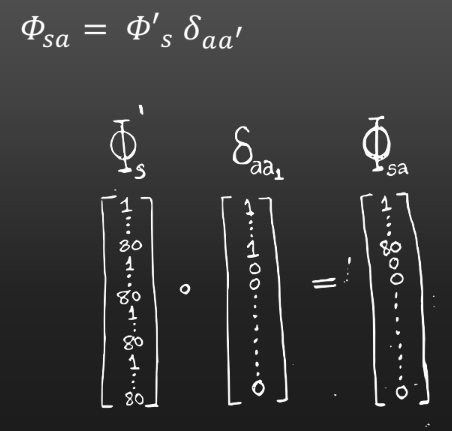 Φ_sa = Φ'_s δ_aa'
Φ'_s δ_aa₁ Φ_sa
1 1 1
⋮ ⋮ ⋮
80 1 80
1 0 0
⋮ 0 0
80 · ⋮ = ⋮
1 ⋮ ⋮
⋮ ⋮ ⋮
80 ⋮ ⋮
1 ⋮ ⋮
⋮ ⋮ ⋮
80 0 0